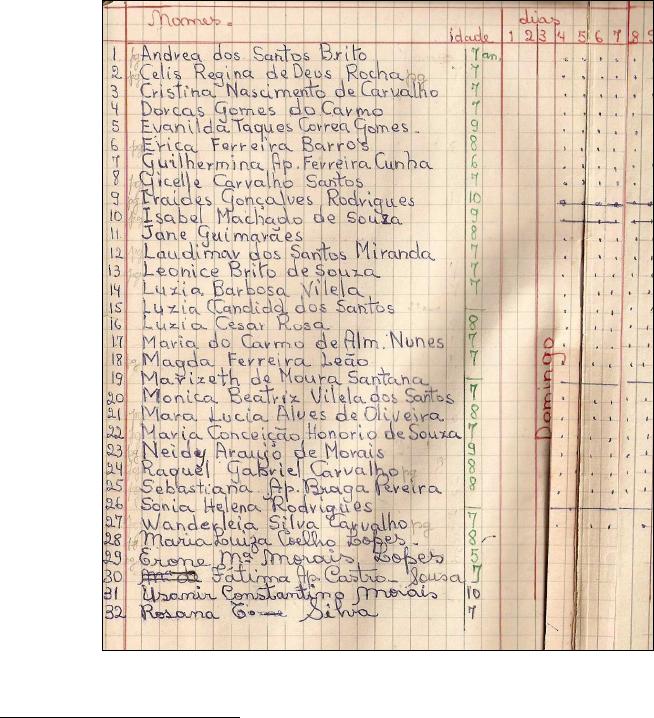 Nomes= dias
idade 1 2 3 4 5 6 7 8 9
1 Andrea dos Santos Brito 7 an.
2 Celis Regina de Deus Rocha pg 7
3 Cristina Nascimento de Carvalho 7
4 Dorcas Gomes do Carmo 7
5 Evanilda Taques Correa Gomes. 9
6 Erica Ferreira Barros 8
7 Guilhermina Ap. Ferreira Cunha 6
8 Gicelle Carvalho Santos 7
9 Iraides Gonçalves Rodrigues 10
10 Isabel Machado de Souza 9
11 Jane Guimarães 8
12 Laudimar dos Santos Miranda 7
13 Leonice Brito de Souza 7
14 Luzia Barbosa Vilela 7
15 Luzia Candida dos Santos
16 Luzia Cesar Rosa 8
17 Maria do Carmo de Alm. Nunes 7
18 Magda Ferreira Leão 7
19 Marizeth de Moura Santana
20 Monica Beatriz Vilela dos Santos 7
21 Mara Lucia Alves de Oliveira 8
22 Maria Conceição Honorio de Souza 7
23 Neide Araujo de Morais 9
24 Raquel Gabriel Carvalho pg 8
25 Sebastiana Ap. Braga Pereira 8
26 Sonia Helena Rodrigues
27 Wanderleia Silva Carvalho pg 7
28 Maria Louiza Coelho Lopes. 8
29 Erone Mª Morais Lopes 5
30 Fátima Ap. Castro Sousa 7
31 Usanir Constantino Morais 10
32 Rosana Silva 7
Domingo